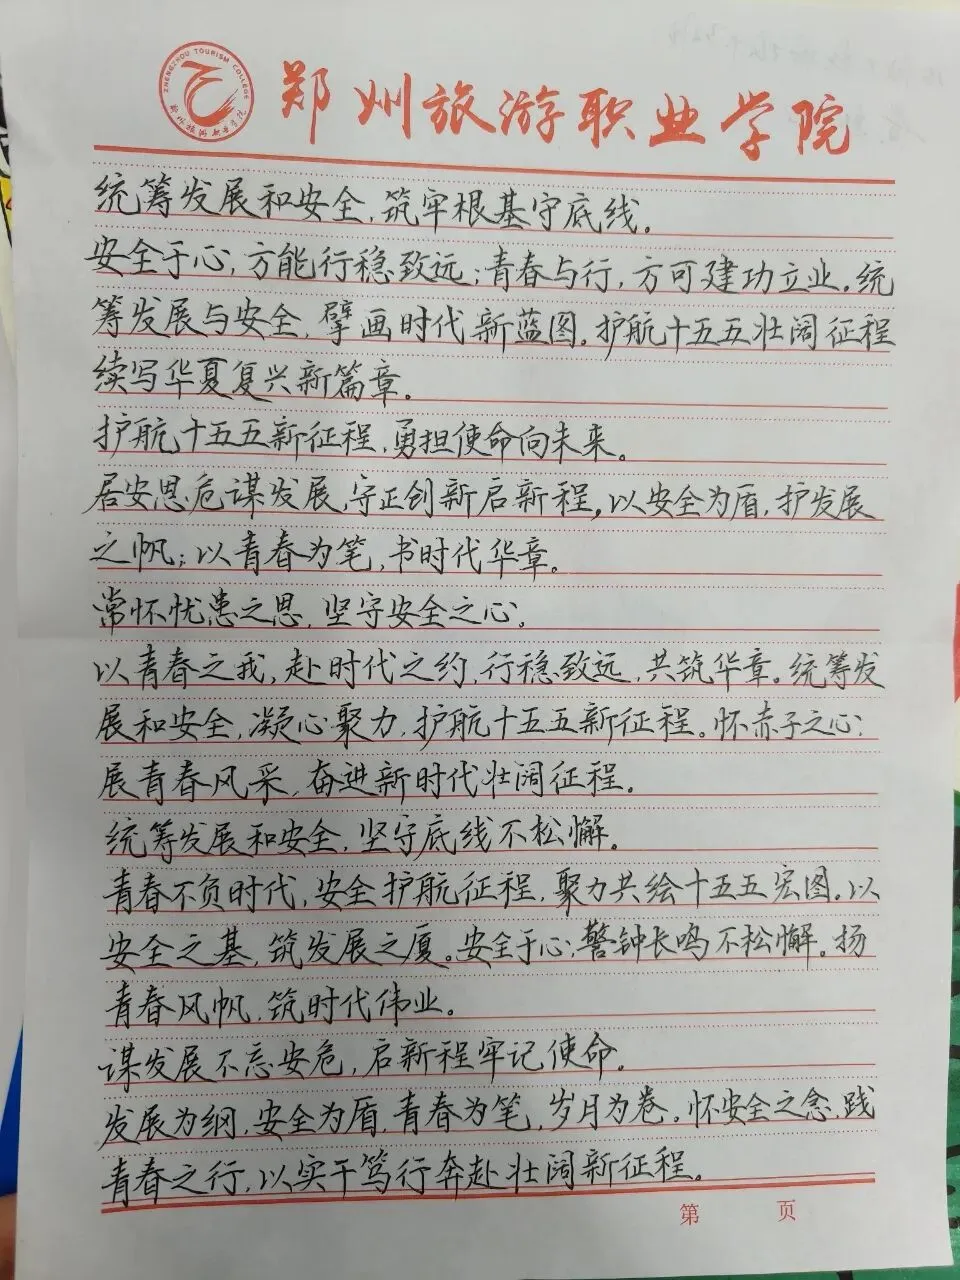 ZHENGZHOU TOURISM COLLEGE
郑州旅游职业学院
郑州旅游职业学院
统筹发展和安全，筑牢根基守底线。
安全于心，方能行稳致远；青春与行，方可建功立业。统
筹发展与安全，擘画时代新蓝图。护航十五五壮阔征程
续写华夏复兴新篇章。
护航十五五新征程，勇担使命向未来。
居安思危谋发展，守正创新启新程。以安全为盾，护发展
之帆；以青春为笔，书时代华章。
常怀忧患之思，坚守安全之心。
以青春之我，赴时代之约，行稳致远，共筑华章。统筹发
展和安全，凝心聚力，护航十五五新征程。怀赤子之心；
展青春风采，奋进新时代壮阔征程。
统筹发展和安全，坚守底线不松懈。
青春不负时代，安全护航征程，聚力共绘十五五宏图。以
安全之基，筑发展之厦。安全于心；警钟长鸣不松懈。扬
青春风帆，筑时代伟业。
谋发展不忘安危，启新程牢记使命。
发展为纲，安全为盾，青春为笔，岁月为卷。怀安全之念，践
青春之行，以实干笃行奔赴壮阔新征程。
第 页